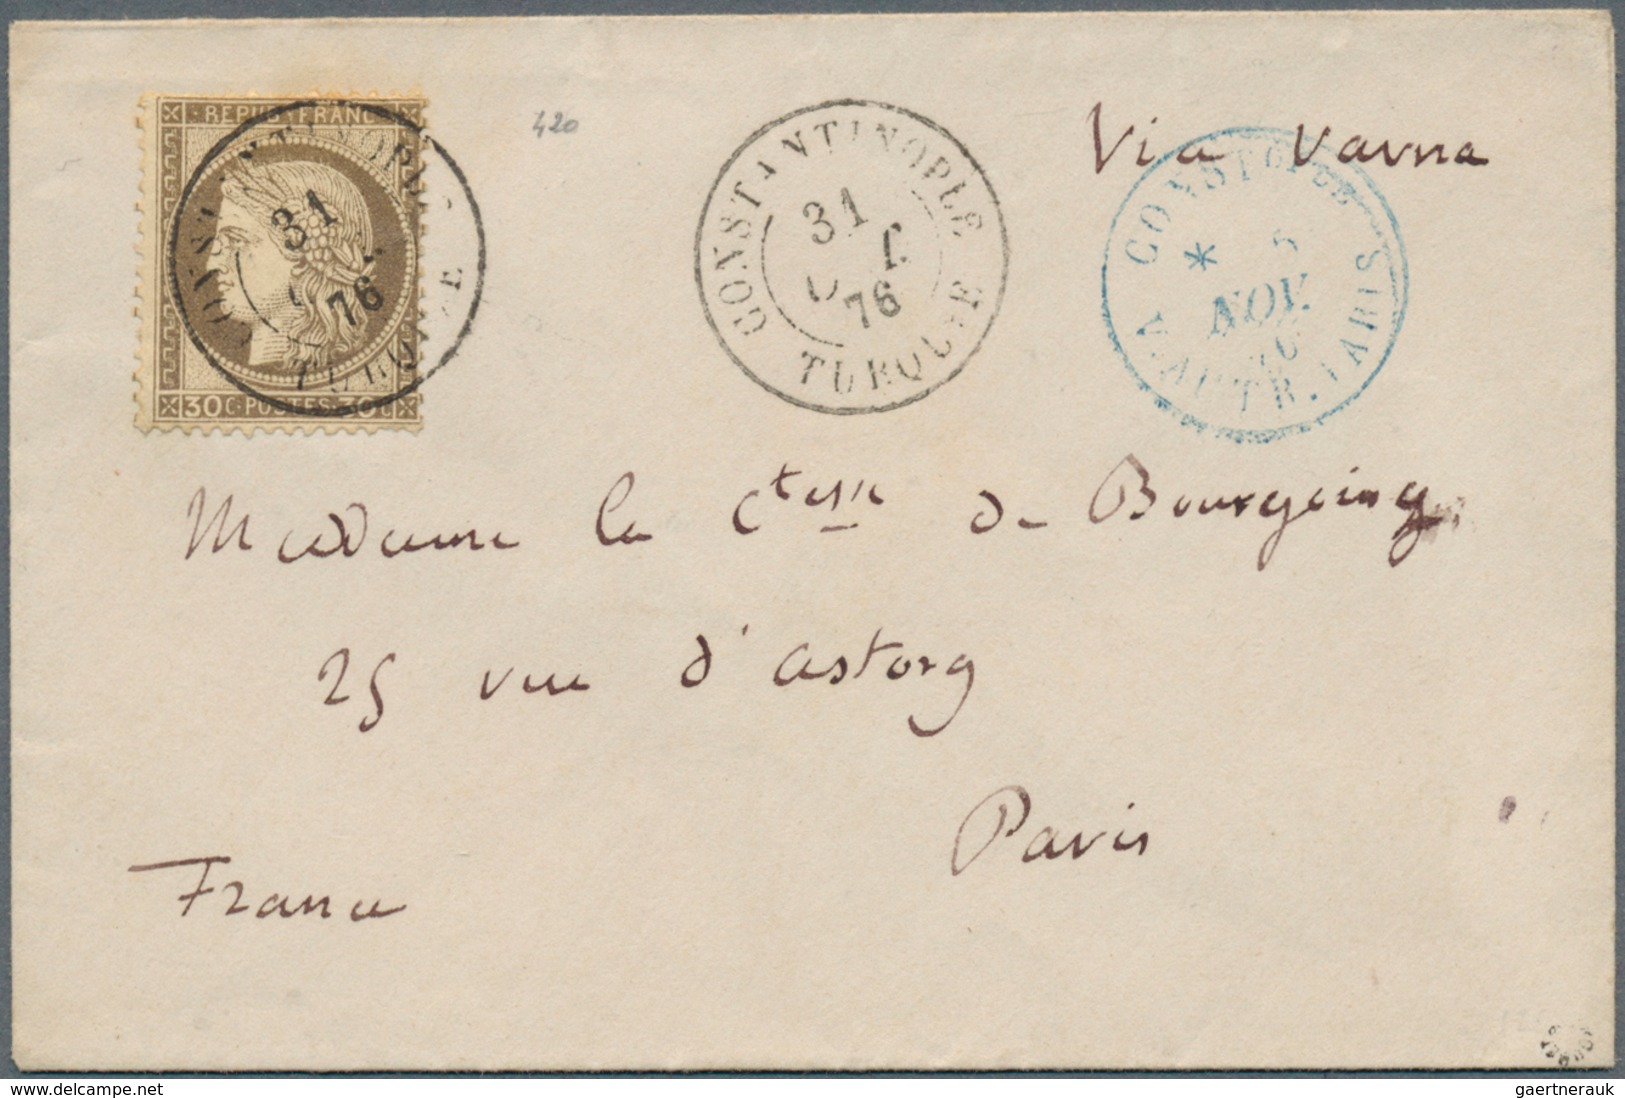 REPUB · FRANC
30 C · POSTES · 30 C
CONSTANTINOPLE
31
76
TURQUIE
420
CONSTANTINOPLE
31
76
TURQUIE
Via Varna
CONSTPLE
*
NOV.
A. AUTR. PARIS
Madame la Ctesse de Bourgoing
25 rue d'astorg
Paris
France
gaertnerauk - delcampe.net
gaertnerauk